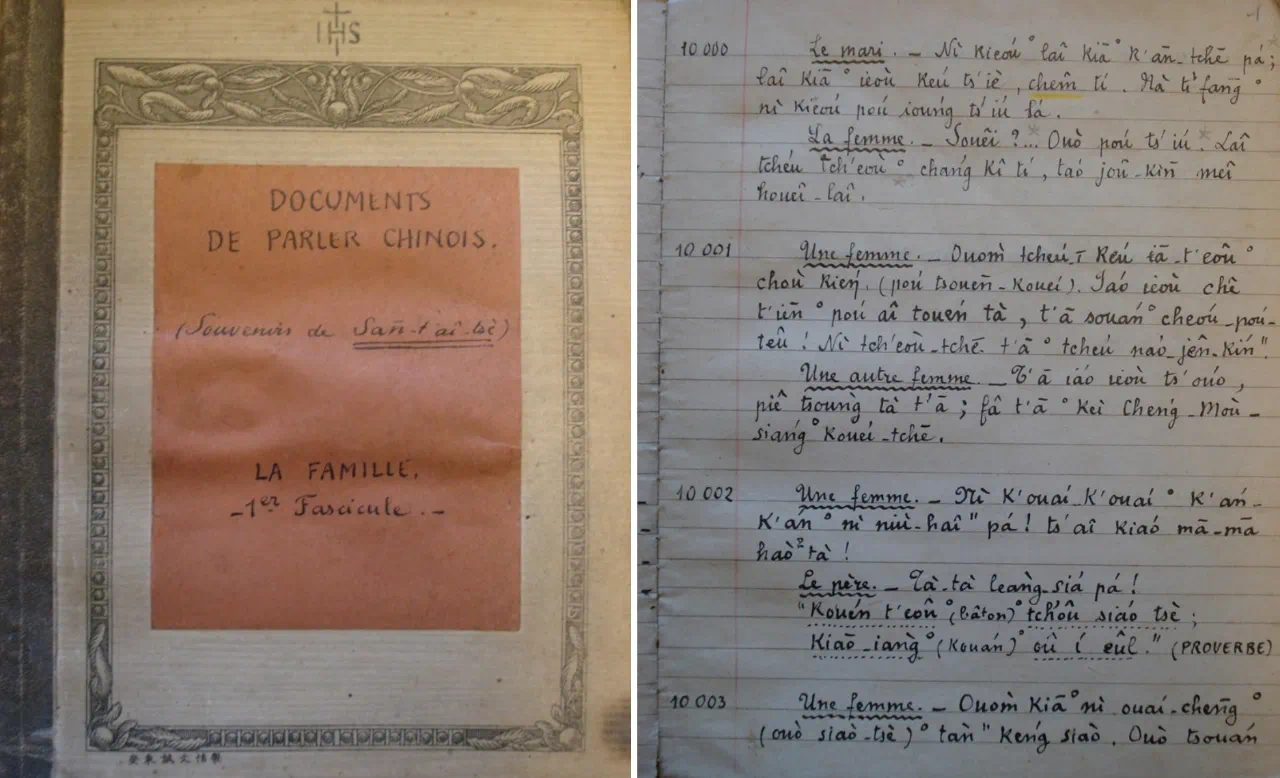 IHS
DOCUMENTS
DE PARLER CHINOIS.
(Souvenirs de Sañ-t'aî-tsè)
LA FAMILLE.
-1er Fascicule.-
1
10 000 Le mari. _ Nì Kieóu° laî Kiā° K'ān-tchē pá;
laî Kiā° ieoù Keú ts'iè, chem̂ tí. Nà tí fanḡ°
nì Kieóu poú ioung ts'iú lá.
La femme. _ Souêi ?... Ouò poú ts'iú. Laî
tcheú tch'eoù° chanǵ Kî tí, taó joû-Kin̄ meî
houeî-laî.
10 001 Une femme. _ Ouom̀ tcheú-ī Keú iā-t'eoû°
choù Kień. (poú tsoueñ-Koueí). Iaó ieoù chê
t'iñ° poú aî touéń tà, t'ā souań° cheoú-poú-
teû ! Nì tch'eoù-tchē t'ā° tcheú naó-jên-Kiń".
Une autre femme. _ T'ā iáo ieoù ts'oúo,
piê tsoung̀ tà t'ā ; fâ t'ā° Keì Cheńg-Moù-
siańg° Koueí-tchē.
10 002 Une femme. _ Nì K'ouaí-K'ouaí° K'ań-
K'ań° nì niù-haî" pá ! ts'aî Kiaó mā-mā
haò² tà !
Le père. _ Tà-tà leang̀-siá pá !
"Kouén t'eoû (bâton)° tch'oû siaó tsè ;
Kiaō-iang̀° (Kouań)° où í eûl." (PROVERBE)
10 003 Une femme. _ Ouom̀ Kiā° nì ouaí-cheng̃°
(ouò siaò-tsè)° tañ" Keńg siaò. Ouò tsouań